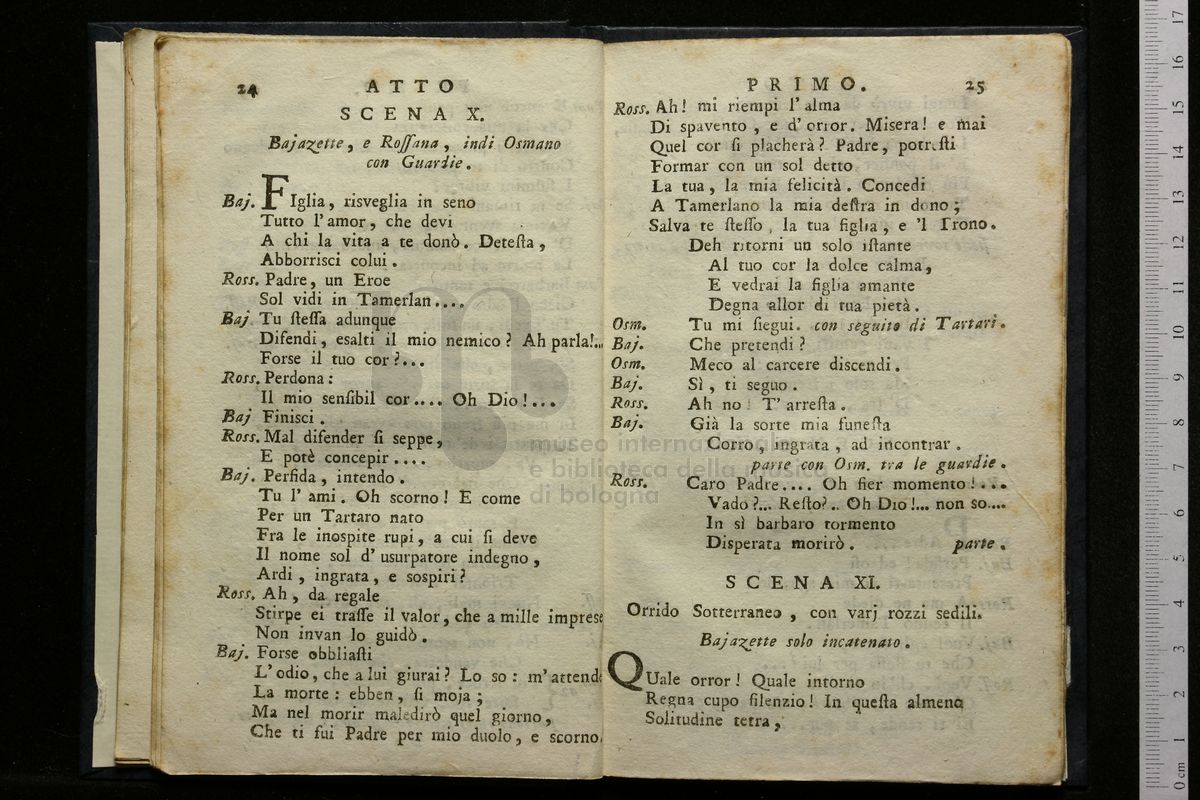 24
ATTO
SCENA X.
Bajazette, e Roſſana, indi Osmano
con Guardie.
Baj. FIglia, risveglia in seno
Tutto l'amor, che devi
A chi la vita a te donò. Deteſta,
Abborrisci colui.
Ross. Padre, un Eroe
Sol vidi in Tamerlan....
Baj. Tu ſteſſa adunque
Difendi, esalti il mio nemico? Ah parla!...
Forse il tuo cor?...
Ross. Perdona:
Il mio senſibil cor.... Oh Dio!...
Baj Finisci.
Ross. Mal difender ſi seppe,
E potè concepir....
Baj. Perfida, intendo.
Tu l' ami. Oh scorno! E come
Per un Tartaro nato
Fra le inospite rupi, a cui ſi deve
Il nome sol d' usurpatore indegno,
Ardi, ingrata, e sospiri?
Ross. Ah, da regale
Stirpe ei traſſe il valor, che a mille imprese
Non invan lo guidò.
Baj. Forse obbliaſti
L'odio, che a lui giurai? Lo so: m'attende
La morte: ebben, ſi moja;
Ma nel morir maledirò quel giorno,
Che ti fui Padre per mio duolo, e scorno.
PRIMO.
25
Ross. Ah! mi riempi l'alma
Di spavento, e d'orror. Misera! e mai
Quel cor ſi placherà? Padre, potreſti
Formar con un sol detto
La tua, la mia felicità. Concedi
A Tamerlano la mia deſtra in dono;
Salva te ſteſſo, la tua figlia, e 'l Trono.
Deh ritorni un solo iſtante
Al tuo cor la dolce calma,
E vedrai la figlia amante
Degna allor di tua pietà.
Osm. Tu mi ſiegui. con seguito di Tartari.
Baj. Che pretendi?
Osm. Meco al carcere discendi.
Baj. Sì, ti seguo.
Ross. Ah no! T' arreſta.
Baj. Già la sorte mia funeſta
Corro, ingrata, ad incontrar.
parte con Osm. tra le guardie.
Ross. Caro Padre.... Oh fier momento!...
Vado?... Reſto?.. Oh Dio!... non so....
In sì barbaro tormento
Disperata morirò. parte.
SCENA XI.
Orrido Sotterraneo, con varj rozzi sedili.
Bajazette solo incatenato.
QUale orror! Quale intorno
Regna cupo ſilenzio! In queſta almeno
Solitudine tetra,
museo internazionale
e biblioteca della musica
di bologna
0 cm 1 2 3 4 5 6 7 8 9 10 11 12 13 14 15 16 17